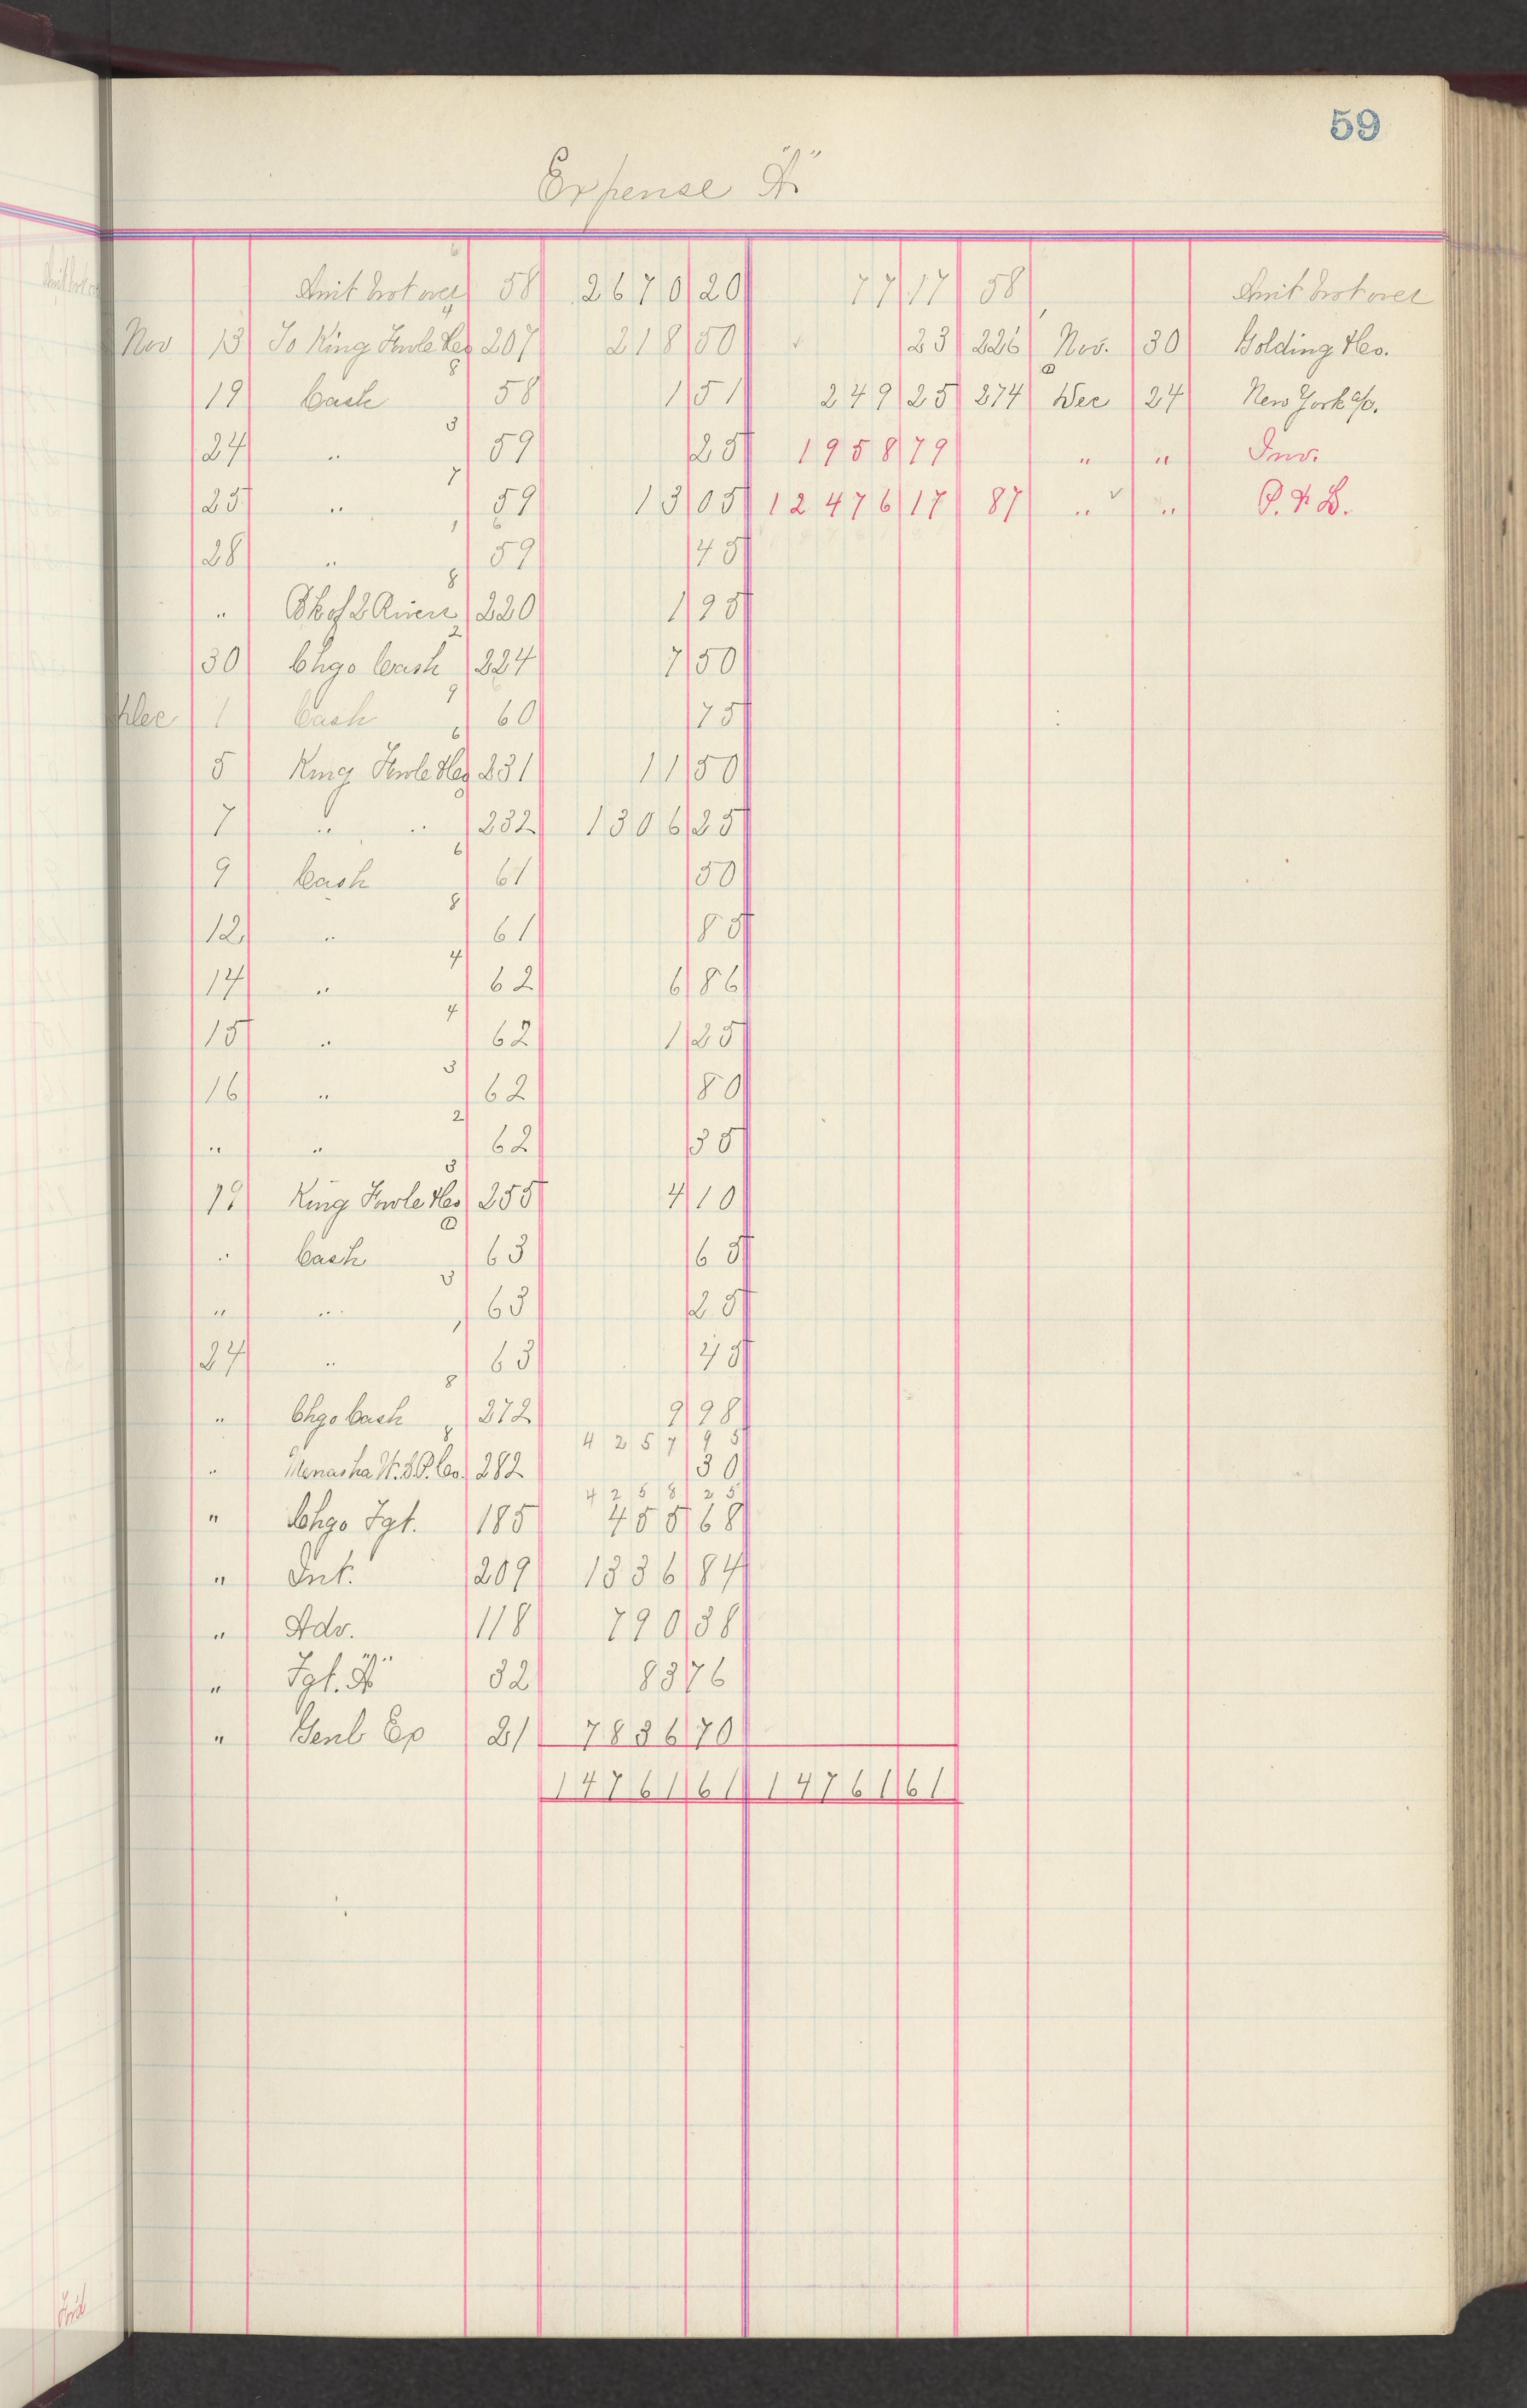 59
Expense "A"
Amt brot over 58 2670 20 77 17 58 Amt brot over
Nov 13 To King Fowle & Co 207 218 50 23 226 Nov. 30 Golding & Co.
19 Cash 58 1 51 249 25 274 Dec 24 New York a/c.
24 " 59 25 1958 79 " " Inv.
25 " 59 13 05 12476 17 87 " " P. & L.
28 " 59 45
" Bk of 2 Rivers 220 1 95
30 Chgo Cash 224 7 50
Dec 1 Cash 60 75
5 King Fowle & Co 231 11 50
7 " " 232 1306 25
9 Cash 61 50
12 " 61 85
14 " 62 6 86
15 " 62 1 25
16 " 62 80
" " 62 35
19 King Fowle & Co 255 4 10
" Cash 63 65
" " 63 25
24 " 63 45
" Chgo Cash 272 9 98
4257 95
" Menasha W. S. P. Co. 282 30
4258 25
" Chgo Fgt. 185 455 68
" Int. 209 1336 84
" Adv. 118 790 38
" Fgt. "A" 32 83 76
" Genl Ex 21 7836 70
14761 61 14761 61